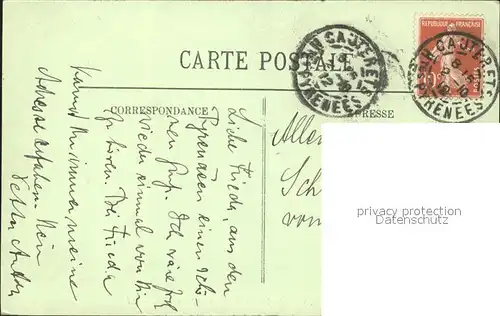 CARTE POSTALE
CORRESPONDANCE
RESSE
REPUBLIQUE FRANÇAISE
CAUTERETS
PYRENEES
CAUTERETS
PYRENEES
10
Liebe Frieda, aus den
Pyrenäen einen
Gruß. Ich wäre froh
wieder einmal von Dir
zu hören. Die Frieda
kannst Du immer meine
Adresse erfahren. Dein
Vetter
Allem
Sch
von
privacy protection
Datenschutz